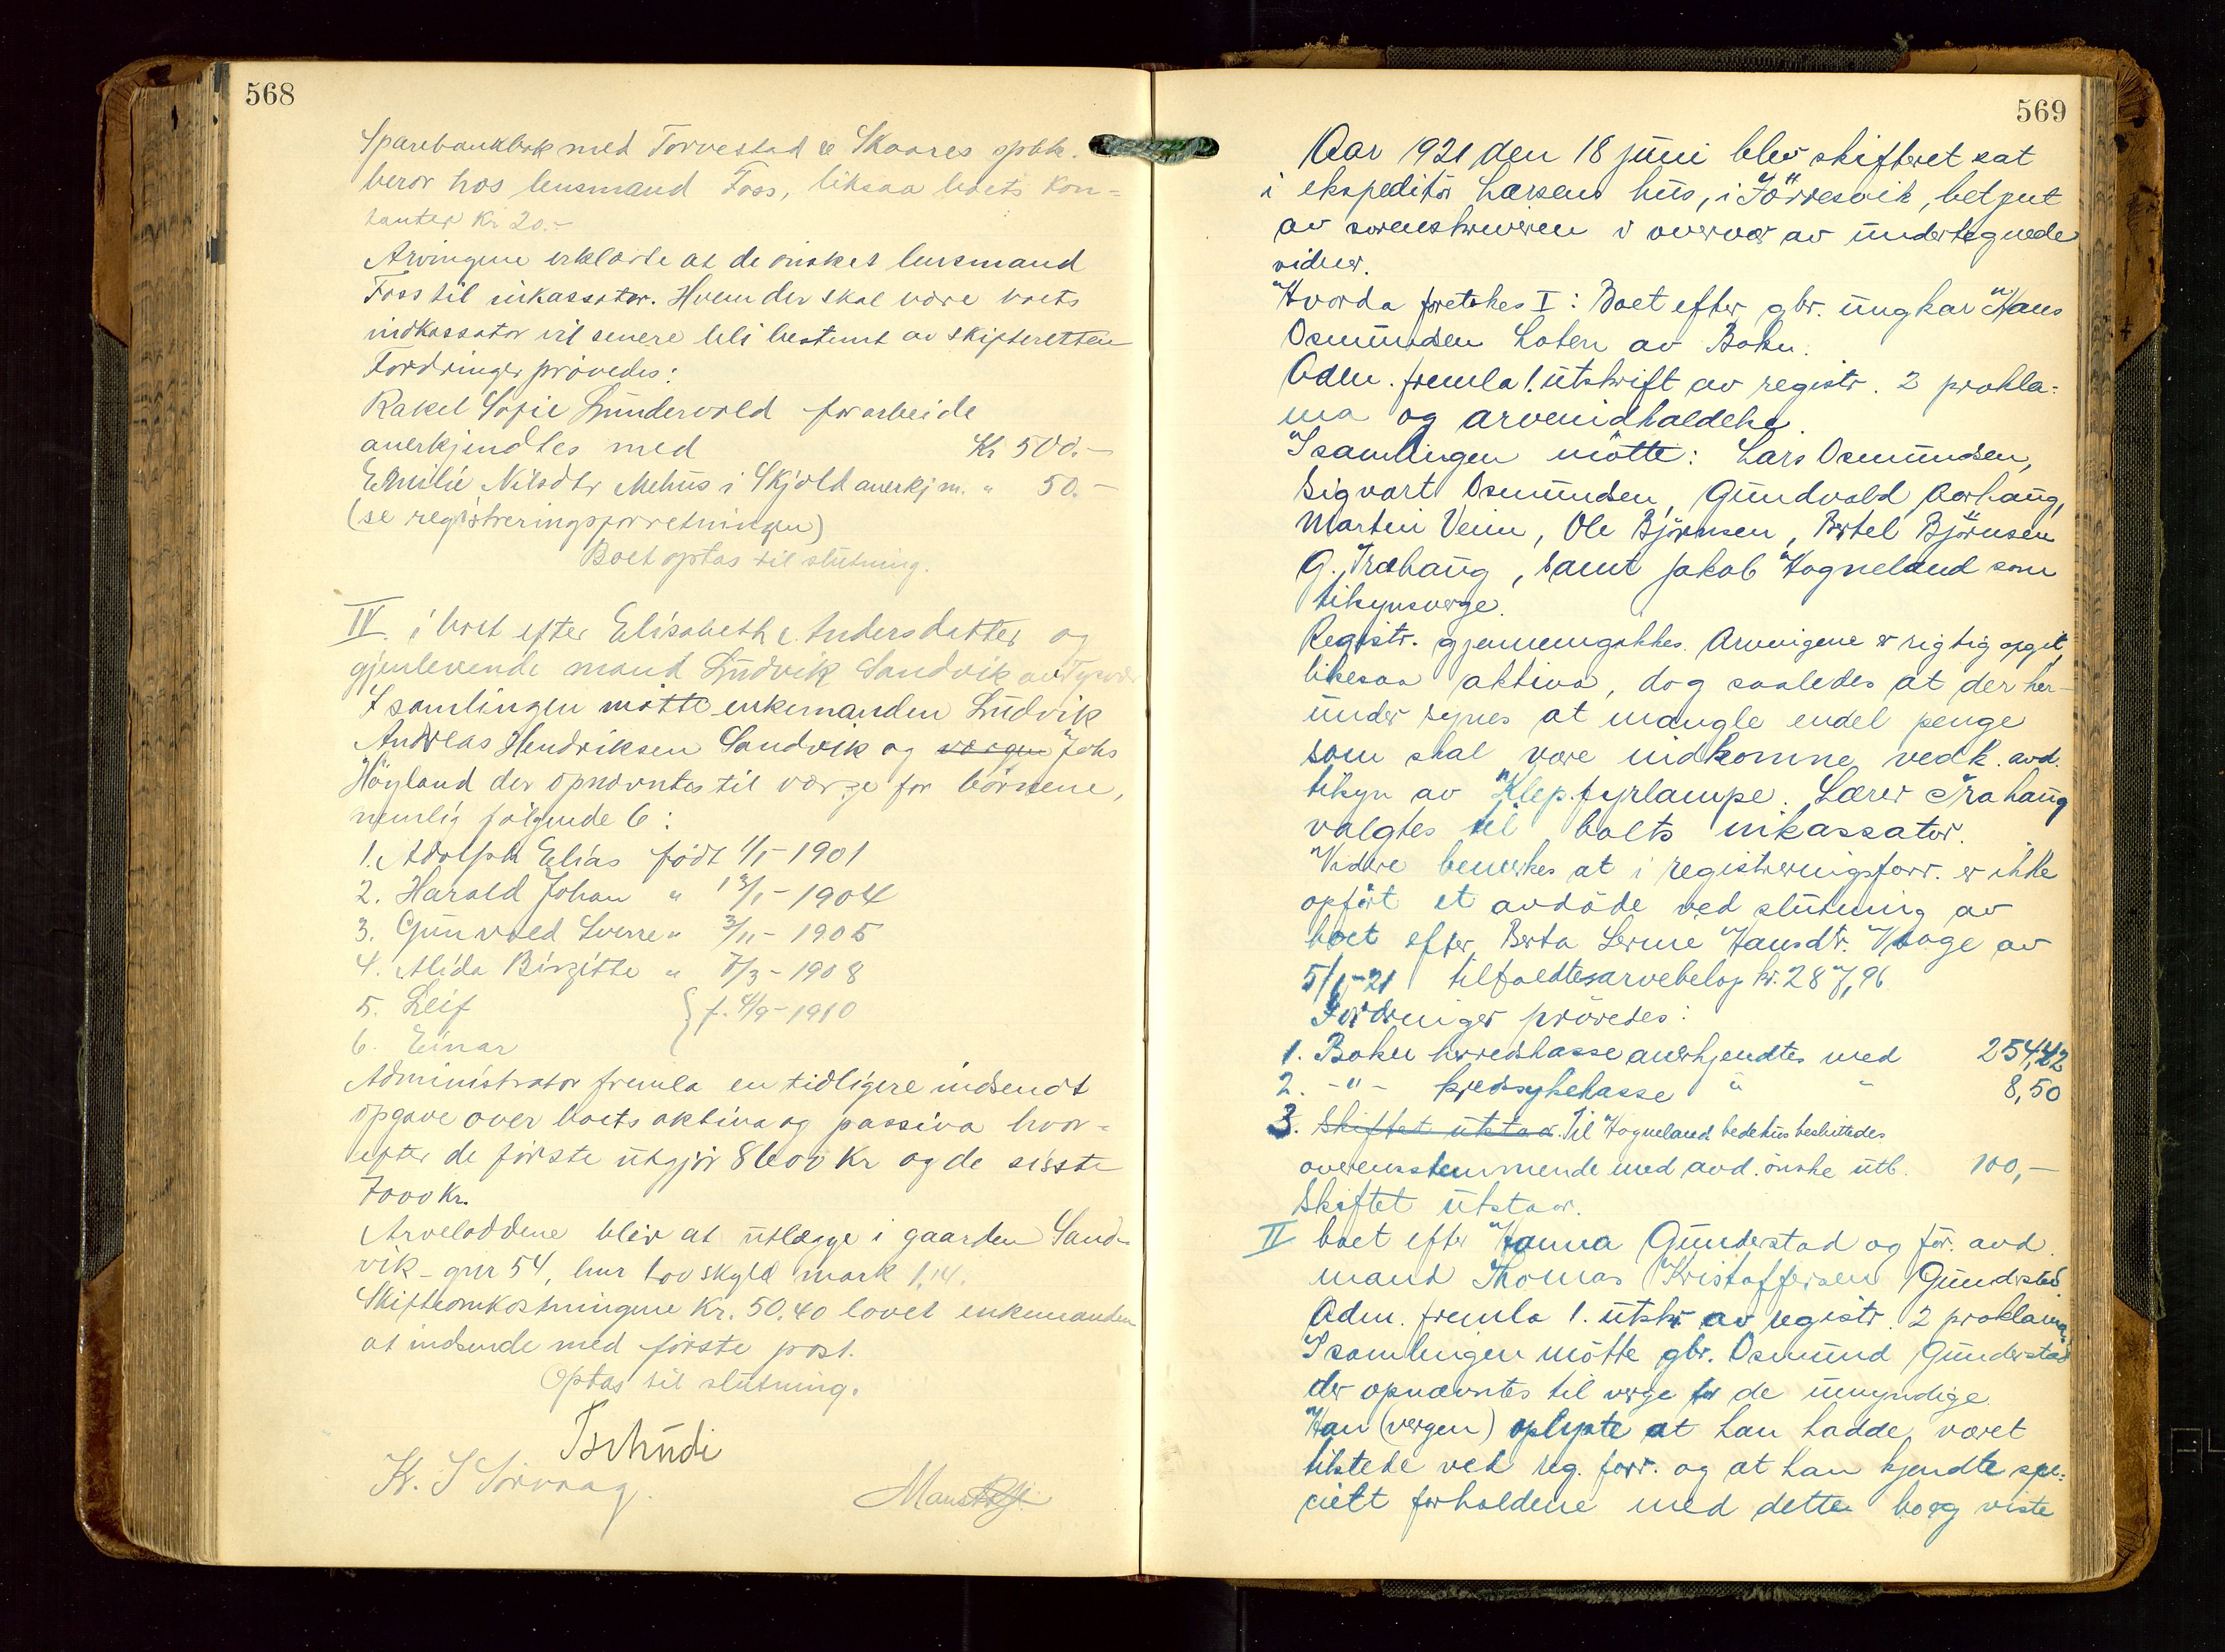 568
Sparebankbok med Torvestad & Skaares spbk.
beror hos lensmand Foss, liksaa boets kon-
tanter Kr 20.-
Arvingene erklærte at de önsket lensmand
Foss til inkassator. Hvem der skal være boets
indkassator vil senere bli bestemt av skifteretten
Fordringer prövedes:
Rakel Sofie Lundervold for arbeide
anerkjendtes med Kr 500.-
Emilie Nilsdtr Mehus i Skjold anerkj m. " 50.-
(se registreringsforretningen)
Boet optas til slutning.
IV. i boet efter Elisabeth Andersdatter og
gjenlevende mand Ludvik Sandvik av Tysvær
I samlingen mötte enkemanden Ludvik
Andreas Hendriksen Sandvik og vergen Johs
Höyland der opnævntes til værge for börnene,
nemlig fölgende 6:
1. Adolph Elias födt 1/1 - 1901
2. Harald Johan " 13/1 - 1904
3. Gunvald Sverre " 3/11 - 1905
4. Alida Birgitte " 7/3 - 1908
5. Leif } f. 4/9 - 1910
6. Einar
Administrator fremla en tidligere indsendt
opgave over boets aktiva og passiva hvor-
efter de förste utgjör 8600 Kr og de sisste
7000 Kr.
Arveloddene blir at utlægge i gaarden Sand-
vik - gnr 54, bnr 1 av skyld mark 1,14.
Skifteomkostningene Kr. 50.40 lovet enkemanden
at indsende med förste post.
Optas til slutning.
Tschudi
K. J Sörvaag.
569
Aar 1921 den 18 juni blev skifteret sat
i ekspeditör Larsens hus, i Förresvik, betjent
av sorenskriveren i overvær av undertegnede
vidner.
Hvorda foretokes I: Boet efter gbr. ungkar Hans
Osmundsen Loten av Bokn.
Adm. fremla 1. utskrift av registr. 2 prokla-
ma og arveindkaldelse.
I samlingen mötte: Lars Osmundsen,
Sigvart Osmundsen, Gundvald Aarhaug,
Martin Veim, Ole Björnsen, Bertel Björnsen
G. Træhaug, samt Jakob Hogneland som
tilsynsverge.
Registr. gjennemgikkes. Arvingene er rigtig opgit,
likesaa aktiva, dog saaledes at der her-
under synes at mangle endel penge
som skal være indkomne vedk. avd.
tilsyn av Klep. fyrlampe. Lærer Træhaug
valgtes til boets inkassator.
Videre bemerkes at i registreringsforr. er ikke
opfört et avdöde ved slutning av
boet efter Berta Serine Hansdtr. Vaage av
5/1-21 tilfaldtes arvebelop kr. 287,96
Fordringer prövedes:
1. Bokn herredskasse anerkjendtes med 254,42
2. - " - kredssykekasse " " 8,50
3. Skiftet utstaar. Til Hogneland bedehus besluttedes
overensstemmende med avd. önske utb. 100,-
Skiftet utstaar.
II boet efter Hanna Gunderstad og för. avd.
mand Thomas Kristoffersen Gunderstad.
Adm. fremla 1. utskr av registr. 2 proklama.
I samlingen mötte gbr. Osmund Gunderstad
der opnævntes til verge for de umyndige.
Han (vergen) oplyste at han hadde været
tilstede ved reg. forr. og at han kjendte spe-
cielt forholdene med dette bo og viste